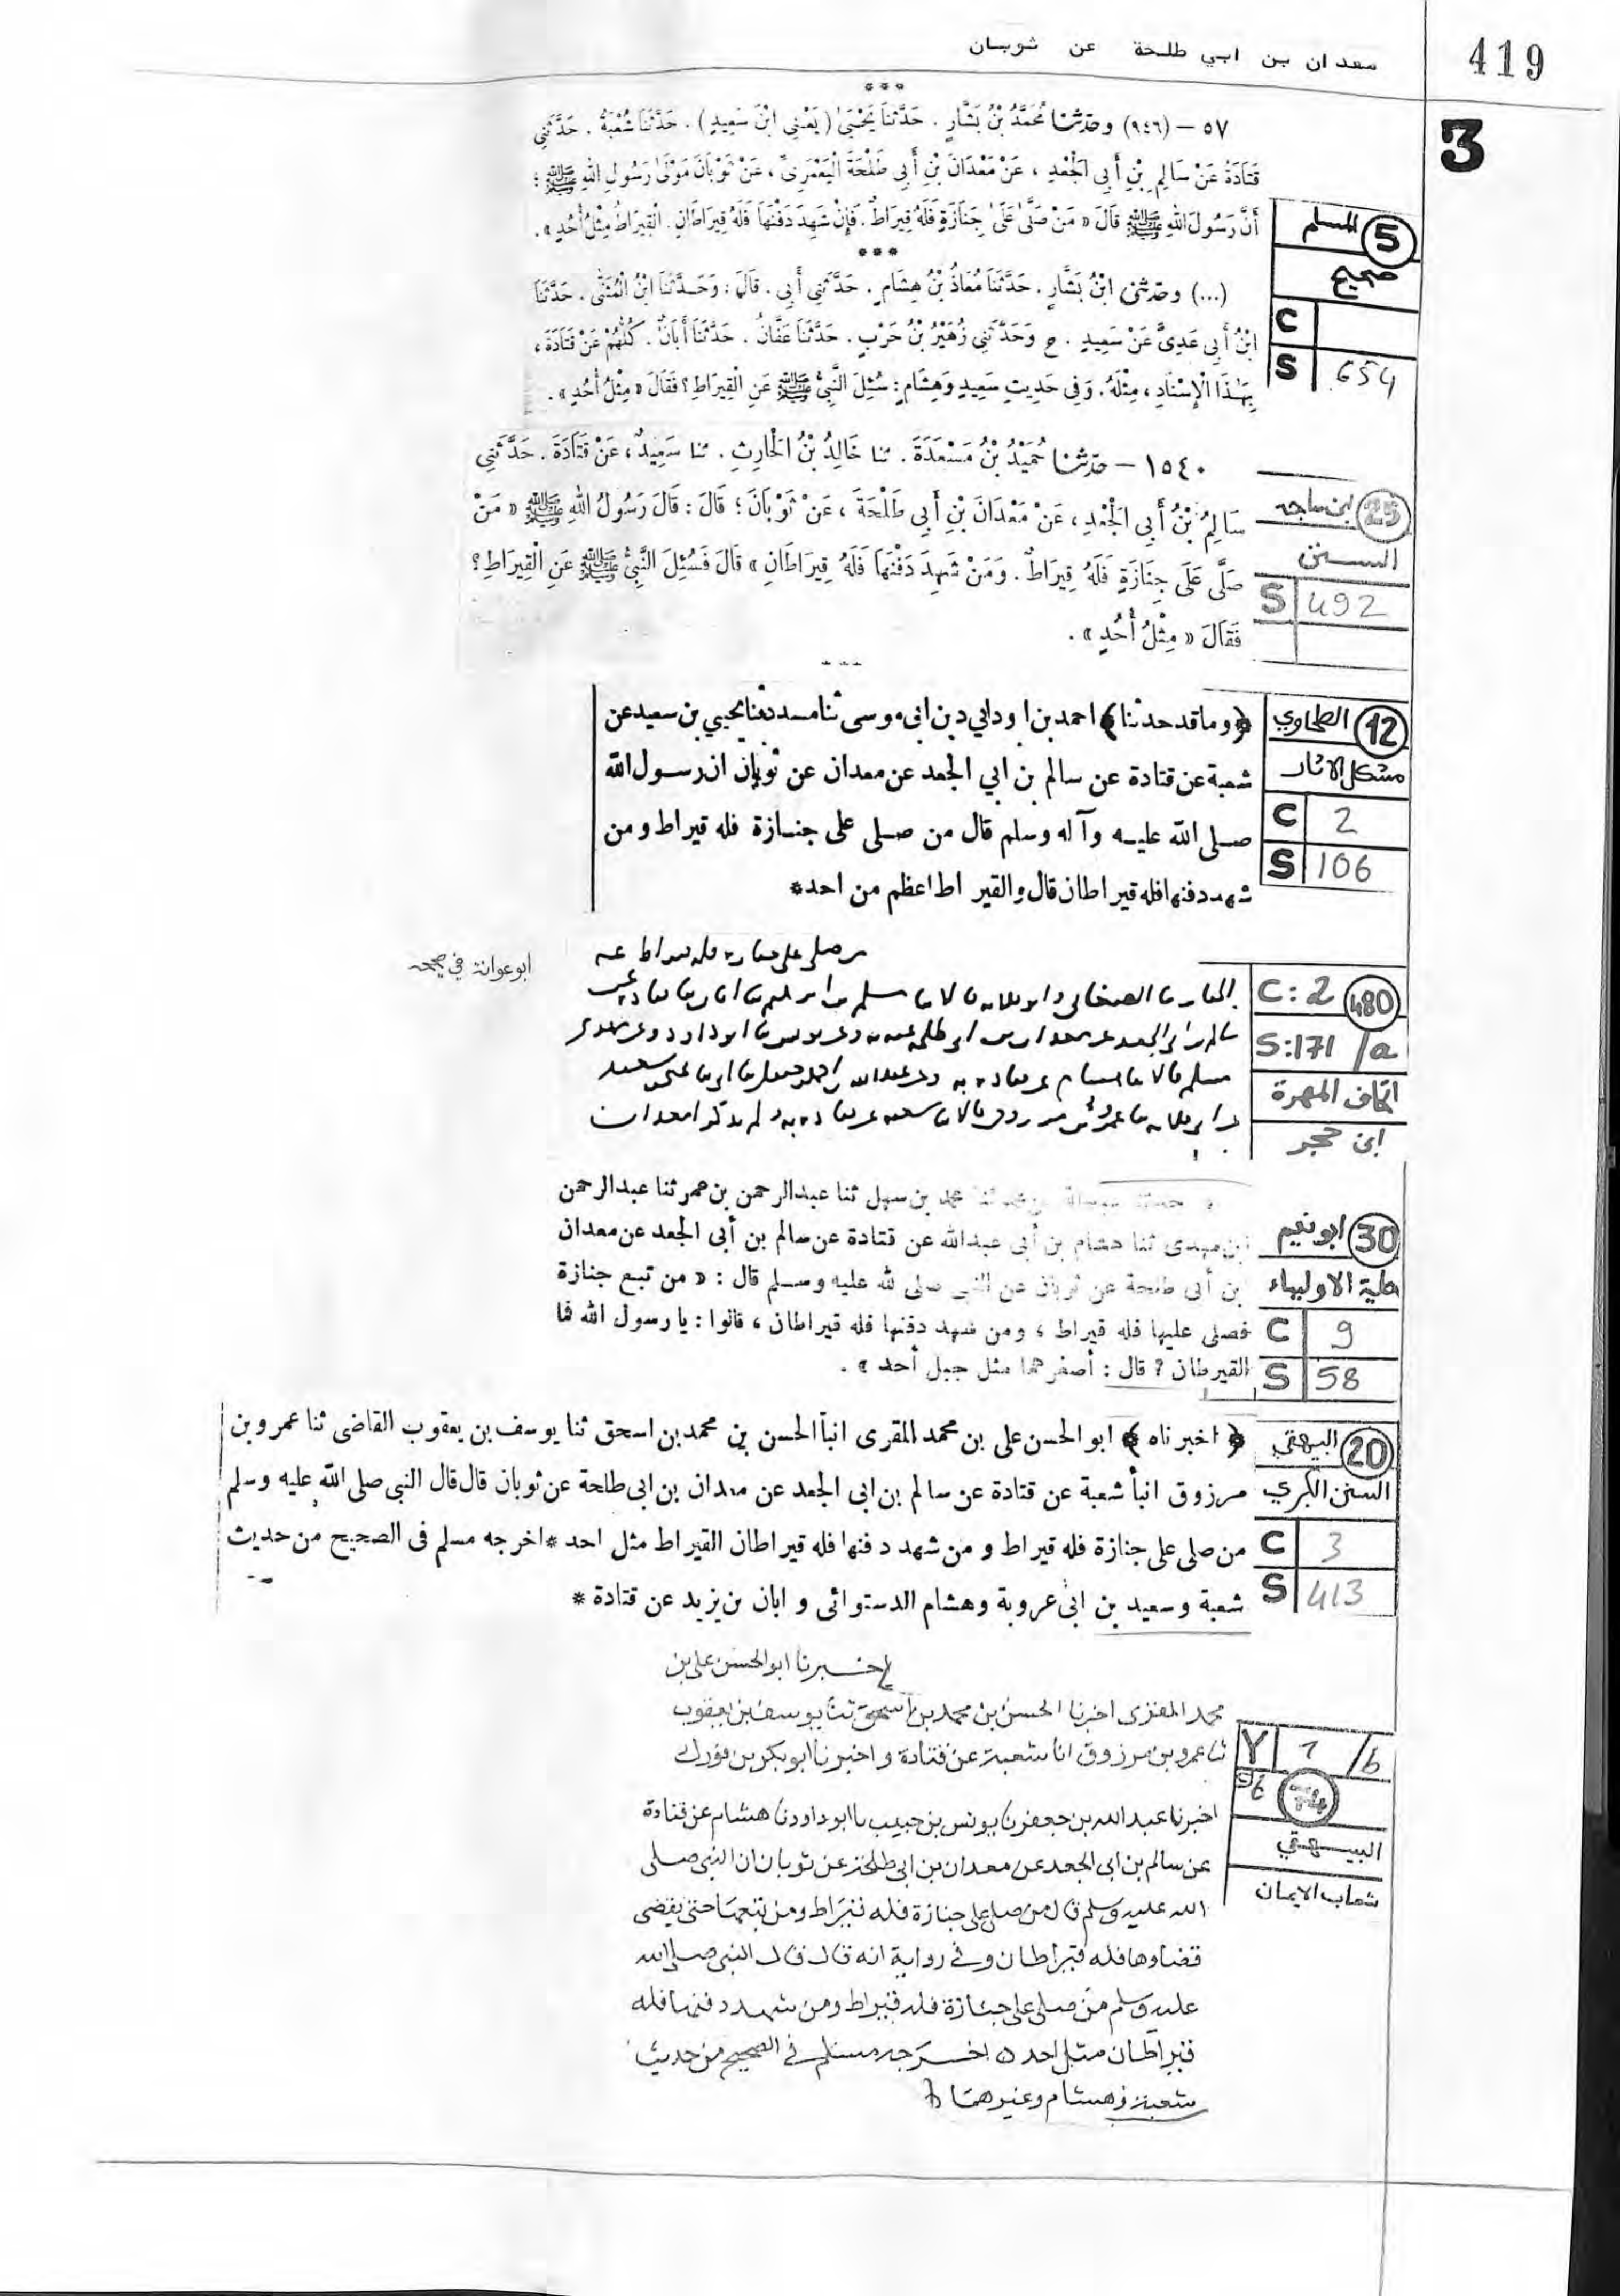 معدان بن ابي طلحة عن ثوبان
419
3
***
٥٧ – (٩٤٦) وحدثنا مُحَمَّدُ بْنُ بَشَّارٍ . حَدَّثَنَا يَحْيَىٰ ( يَعْنِي ابْنَ سَعِيدٍ ) . حَدَّثَنَا شُعْبَةُ . حَدَّثَنِي
قَتَادَةُ عَنْ سَالِمِ بْنِ أَبِي الْجَعْدِ ، عَنْ مَعْدَانَ بْنِ أَبِي طَلْحَةَ الْيَعْمَرِيِّ ، عَنْ ثَوْبَانَ مَوْلَىٰ رَسُولِ اللهِ ﷺ ؛
أَنَّ رَسُولَ اللهِ ﷺ قَالَ « مَنْ صَلَّىٰ عَلَىٰ جِنَازَةٍ فَلَهُ قِيرَاطٌ . فَإِنْ شَهِدَ دَفْنَهَا فَلَهُ قِيرَاطَانِ . الْقِيرَاطُ مِثْلُ أُحُدٍ » .
المسلم 5
صحيح
C
S 654
***
(...) وحدثني ابْنُ بَشَّارٍ . حَدَّثَنَا مُعَاذُ بْنُ هِشَامٍ . حَدَّثَنِي أَبِي . قَالَ : وَحَدَّثَنَا ابْنُ الْمُثَنَّىٰ . حَدَّثَنَا
ابْنُ أَبِي عَدِيٍّ عَنْ سَعِيدٍ . ح وَحَدَّثَنِي زُهَيْرُ بْنُ حَرْبٍ . حَدَّثَنَا عَفَّانُ . حَدَّثَنَا أَبَانٌ . كُلُّهُمْ عَنْ قَتَادَةَ ،
بِهَذَا الْإِسْنَادِ ، مِثْلَهُ . وَفِي حَدِيثِ سَعِيدٍ وَهِشَامٍ : سُئِلَ النَّبِيُّ ﷺ عَنِ الْقِيرَاطِ ؟ فَقَالَ « مِثْلُ أُحُدٍ » .
١٥٤٠ – حدثنا حُمَيْدُ بْنُ مَسْعَدَةَ . ثنا خَالِدُ بْنُ الْحَارِثِ . ثنا سَعِيدٌ ، عَنْ قَتَادَةَ . حَدَّثَنِي
سَالِمُ بْنُ أَبِي الْجَعْدِ ، عَنْ مَعْدَانَ بْنِ أَبِي طَلْحَةَ ، عَنْ ثَوْبَانَ ؛ قَالَ : قَالَ رَسُولُ اللهِ ﷺ « مَنْ
صَلَّى عَلَى جِنَازَةٍ فَلَهُ قِيرَاطٌ . وَمَنْ شَهِدَ دَفْنَهَا فَلَهُ قِيرَاطَانِ » قَالَ فَسُئِلَ النَّبِيُّ ﷺ عَنِ الْقِيرَاطِ ؟
فَقَالَ « مِثْلُ أُحُدٍ » .
ابن ماجه 25
السنن
S 492
﴿ وما قد حدثنا ﴾ احمد بن داود بن ابي موسى ثنا مسدد ثنا يحيى بن سعيد عن
شعبة عن قتادة عن سالم بن ابي الجعد عن معدان عن ثوبان ان رسول الله
صلى الله عليه وآله وسلم قال من صلى على جنازة فله قيراط ومن
شهد دفنها فله قيراطان قال والقيراط اعظم من احد*
الطحاوي 12
مشكل الاثار
C 2
S 106
ابو عوانة في صحيحه
من صلى على جنازة فله قيراط عه
سالم بن ابي الجعد عن معدان بن ابي طلحة عنه
C:2 480
S:171 /a
اتحاف المهرة
ابن حجر
محمد بن سهل ثنا عبد الرحمن بن عمر ثنا عبد الرحمن
ابن مهدى ثنا هشام بن أبى عبد الله عن قتادة عن سالم بن أبى الجعد عن معدان
بن أبى طلحة عن ثوبان عن النبي صلى الله عليه وسلم قال : « من تبع جنازة
فصلى عليها فله قيراط ، ومن شهد دفنها فله قيراطان ، قالوا : يا رسول الله فما
القيرطان ؟ قال : أصغرهما مثل جبل أحد » .
ابو نعيم 30
حلية الاولياء
C 9
S 58
﴿ اخبرناه ﴾ ابو الحسن على بن محمد المقرى انبأ الحسن بن محمد بن اسحق ثنا يوسف بن يعقوب القاضى ثنا عمرو بن
مرزوق انبأ شعبة عن قتادة عن سالم بن ابى الجعد عن معدان بن ابى طلحة عن ثوبان قال قال النبى صلى الله عليه وسلم
من صلى على جنازة فله قيراط و من شهد دفنها فله قيراطان القيراط مثل احد * اخرجه مسلم فى الصحيح من حديث
شعبة و سعيد بن ابى عروبة وهشام الدستوائى و ابان بن يزيد عن قتادة *
البيهقي 20
السنن الكبري
C 3
S 413
اخبرنا ابو الحسن على بن
محمد المقرى اخبرنا الحسن بن محمد بن اسحق ثنا يوسف بن يعقوب
ثنا عمرو بن مرزوق انا شعبة عن قتادة و اخبرنا ابو بكر بن فورك
اخبرنا عبد الله بن جعفر نا يونس بن حبيب نا ابو داود نا هشام عن قتادة
عن سالم بن ابى الجعد عن معدان بن ابى طلحة عن ثوبان ان النبى صلى
الله عليه وسلم قال من صلى على جنازة فله قيراط ومن تبعها حتى يقضى
قضاوها فله قيراطان وفى رواية انه قال قال النبى صلى الله
عليه وسلم من صلى على جنازة فله قيراط ومن شهد دفنها فله
قيراطان مثل احد ٥ اخرجه مسلم فى الصحيح من حديث
شعبة وهشام وغيرهما
Y 1 /b
74
البيهقي
شعاب الايمان